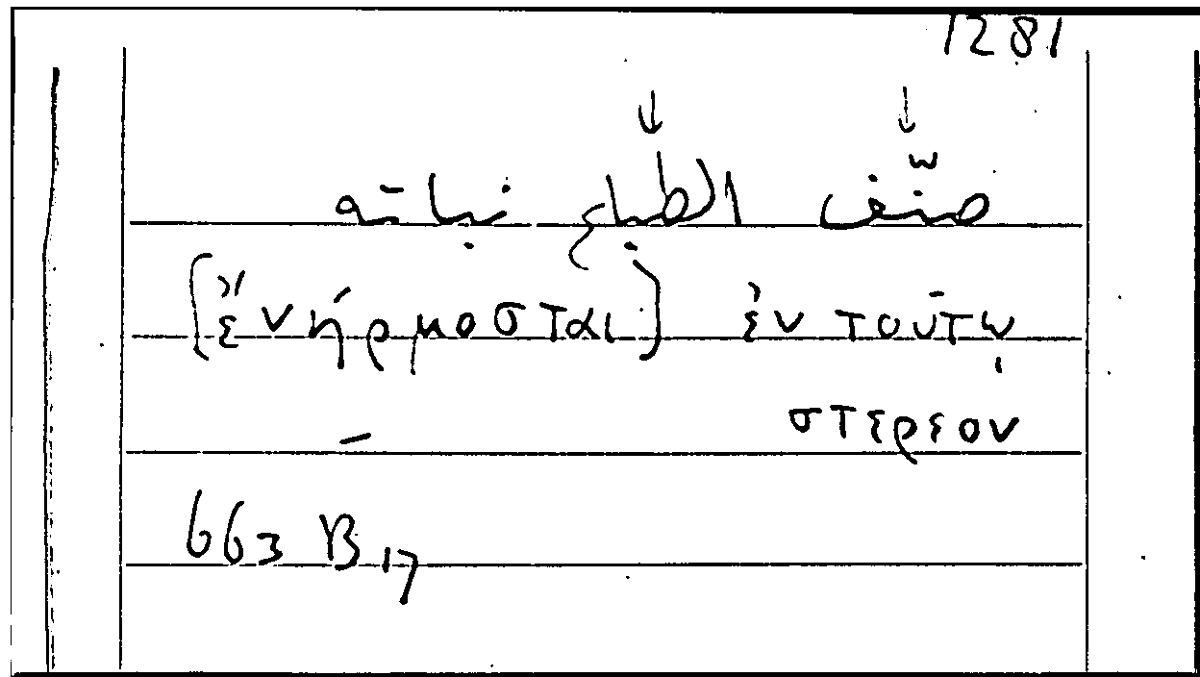 1281
↓ ↓
صنّف الطباع نباته
[ἔνήρμοσται] ἐν τούτῳ
στερεον
—
663 B 17